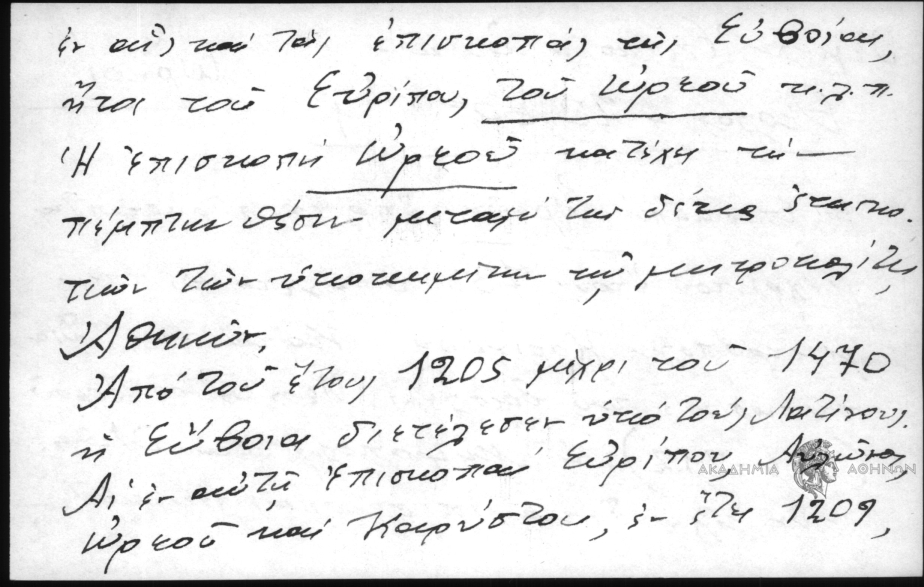 ἐν οἷς καὶ τὰς ἐπισκοπὰς τῆς Εὐβοίας,
ἤτοι τοῦ Εὐρίπου, τοῦ Ὠρεοῦ κ.λ.π.
Ἡ ἐπισκοπὴ Ὠρεοῦ κατέχει τὴν
πέμπτην θέσιν μεταξὺ τῶν δέκα ἐπισκο-
πῶν τῶν ὑποκειμένων τῇ μητροπόλει
Ἀθηνῶν.
Ἀπὸ τοῦ ἔτους 1205 μέχρι τοῦ 1470
ἡ Εὔβοια διετέλεσεν ὑπὸ τοὺς Λατίνους.
Αἱ ἐν αὐτῇ ἐπισκοπαὶ Εὐρίπου, Αὐλῶνος,
Ὠρεοῦ καὶ Καρύστου, ἐν ἔτει 1209,
ΑΚΑΔΗΜΙΑ ΑΘΗΝΩΝ